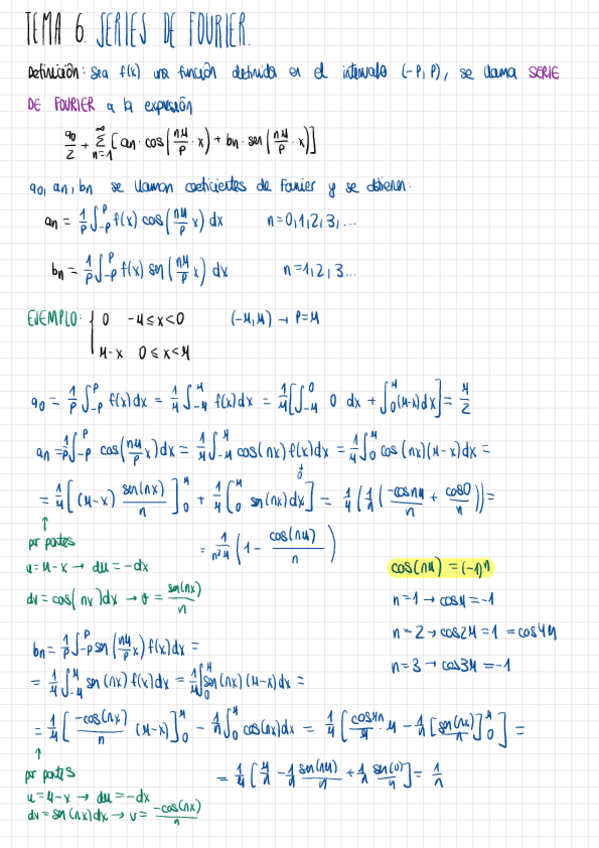 TEMA 6. SERIES DE FOURIER.
Definición: Sea f(x) una función definida en el intervalo (-P, P), se llama SERIE
DE FOURIER a la expresión
a0/2 + ∑_{n=1}^{∞} [an · cos(nπ/P · x) + bn · sen(nπ/P · x)]
a0, an, bn se llaman coeficientes de Fourier y se obtienen:
an = 1/P ∫_{-P}^{P} f(x) cos(nπ/P x) dx n=0,1,2,3,...
bn = 1/P ∫_{-P}^{P} f(x) sen(nπ/P x) dx n=1,2,3...
EJEMPLO: { 0 -π ≤ x < 0 (-π,π) → P=π
π-x 0 ≤ x < π
a0 = 1/P ∫_{-P}^{P} f(x) dx = 1/π ∫_{-π}^{π} f(x) dx = 1/π [∫_{-π}^{0} 0 dx + ∫_{0}^{π} (π-x) dx] = π/2
an = 1/P ∫_{-P}^{P} cos(nπ/P x) dx = 1/π ∫_{-π}^{π} cos(nx) f(x) dx = 1/π ∫_{0}^{π} cos(nx)(π-x) dx =
= 1/π [(π-x) sen(nx)/n]_{0}^{π} + 1/π [∫_{0}^{π} sen(nx) dx] = 1/π (1/n (-cosnπ/n + cos0/n)) =
por partes
= 1/n²π (1 - cos(nπ)/n)
u = π-x → du = -dx
dv = cos(nx)dx → v = sen(nx)/n
cos(nπ) = (-1)^n
n=1 → cosπ = -1
n=2 → cos2π = 1 = cos4π
n=3 → cos3π = -1
bn = 1/P ∫_{-P}^{P} sen(nπ/P x) f(x) dx =
= 1/π ∫_{-π}^{π} sen(nx) f(x) dx = 1/π ∫_{0}^{π} sen(nx)(π-x) dx =
= 1/π [-cos(nx)/n (π-x)]_{0}^{π} - 1/n ∫_{0}^{π} cos(nx) dx = 1/π [· π - 1/n [sen(nx)/n]_{0}^{π}] =
por partes
= 1/π [π/n - 1/n sen(nπ)/n + 1/n sen(0)/n] = 1/n
u = π-x → du = -dx
dv = sen(nx)dx → v = -cos(nx)/n